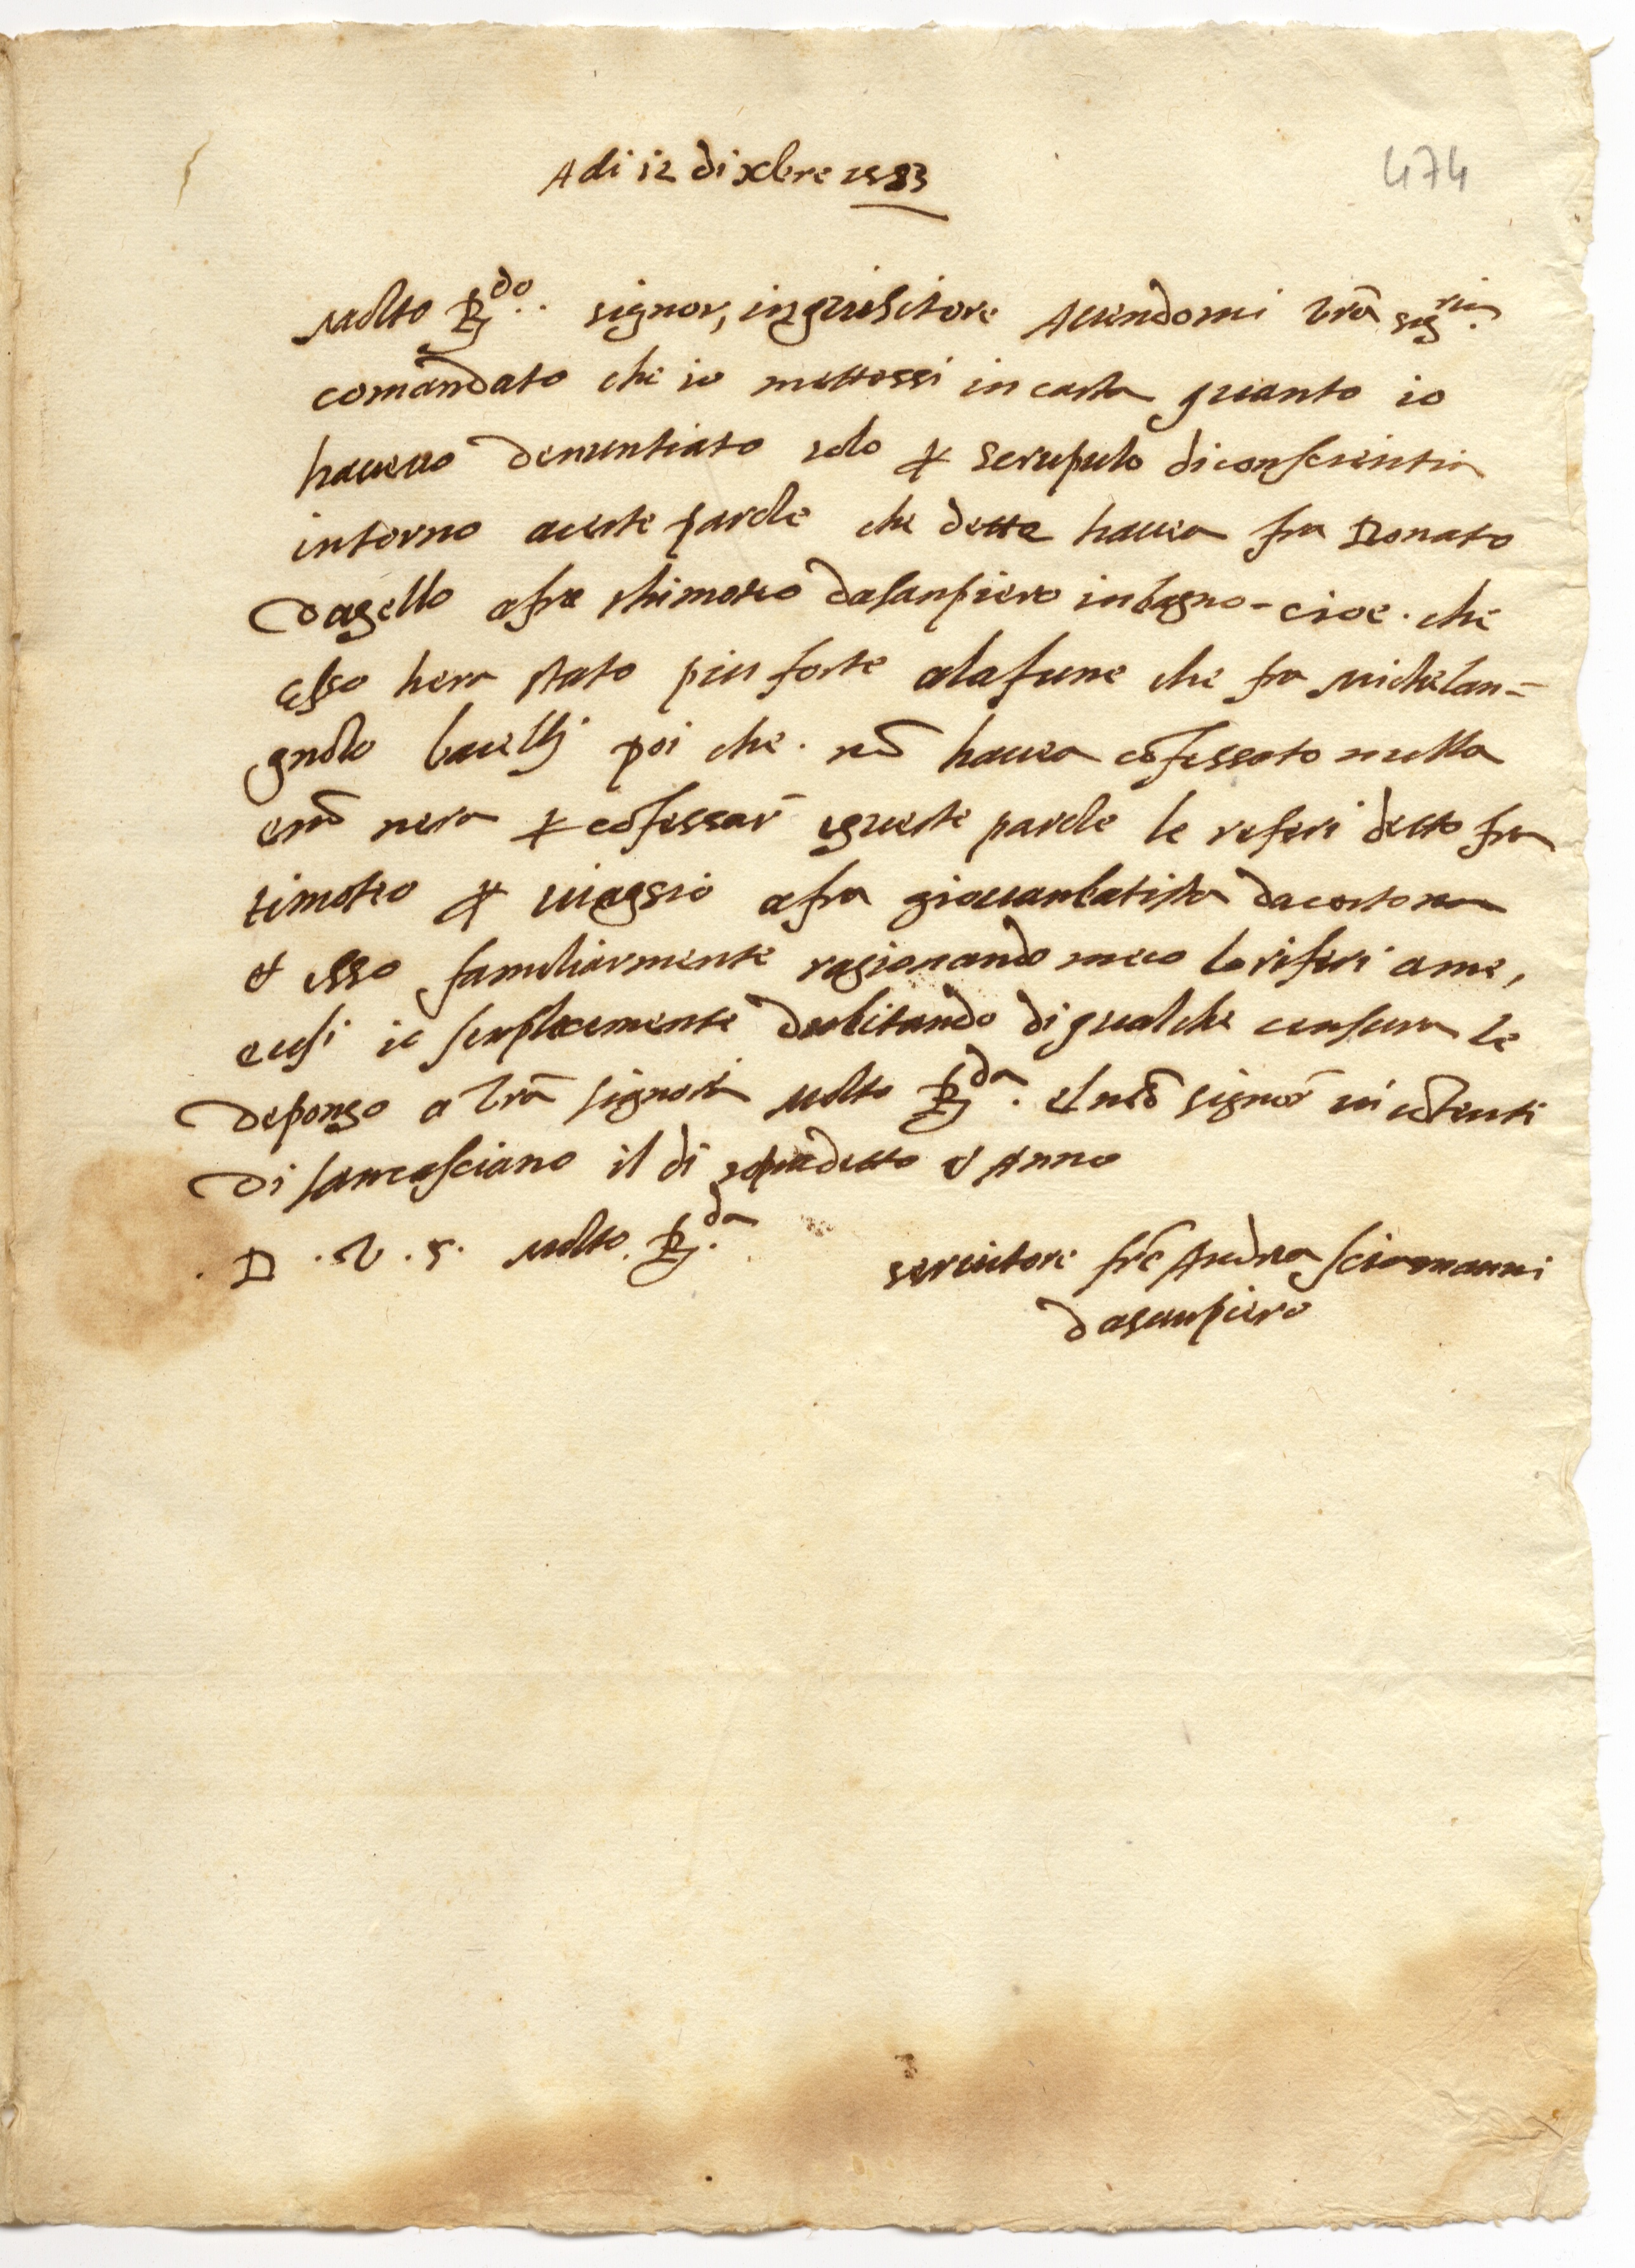 Adi 12 di xbre 1583
474
Molto Rdo. signor, inquisitore Avendomi vrã sigria
comandato che io mettessi in carta quanto io
havevo denuntiato solo p scrupulo di conscientia
intorno a certe parole che dette havea fra Donato
dagello a fra thimoteo da sanpiero inbagno - cioe. che
esso hera stato piu forte ala fune che fra michelan=
gnolo poi che. nõ havea cõfessato nulla
e nõ nera p cõfessar queste parole le referi detto fra
timoteo p viaggio a fra giovanbatista da cortona
et esso familiarmente ragionando meco le riferi a me,
e cusi io senplicemente dubitando di qualche censura le
depongo a vrã signoria molto Rda. el signor
di sancasciano il di sopradetto et Anno
. D . V . S . molto. Rda.
servitore frẽ Andrea sciamanni
da sanpiero